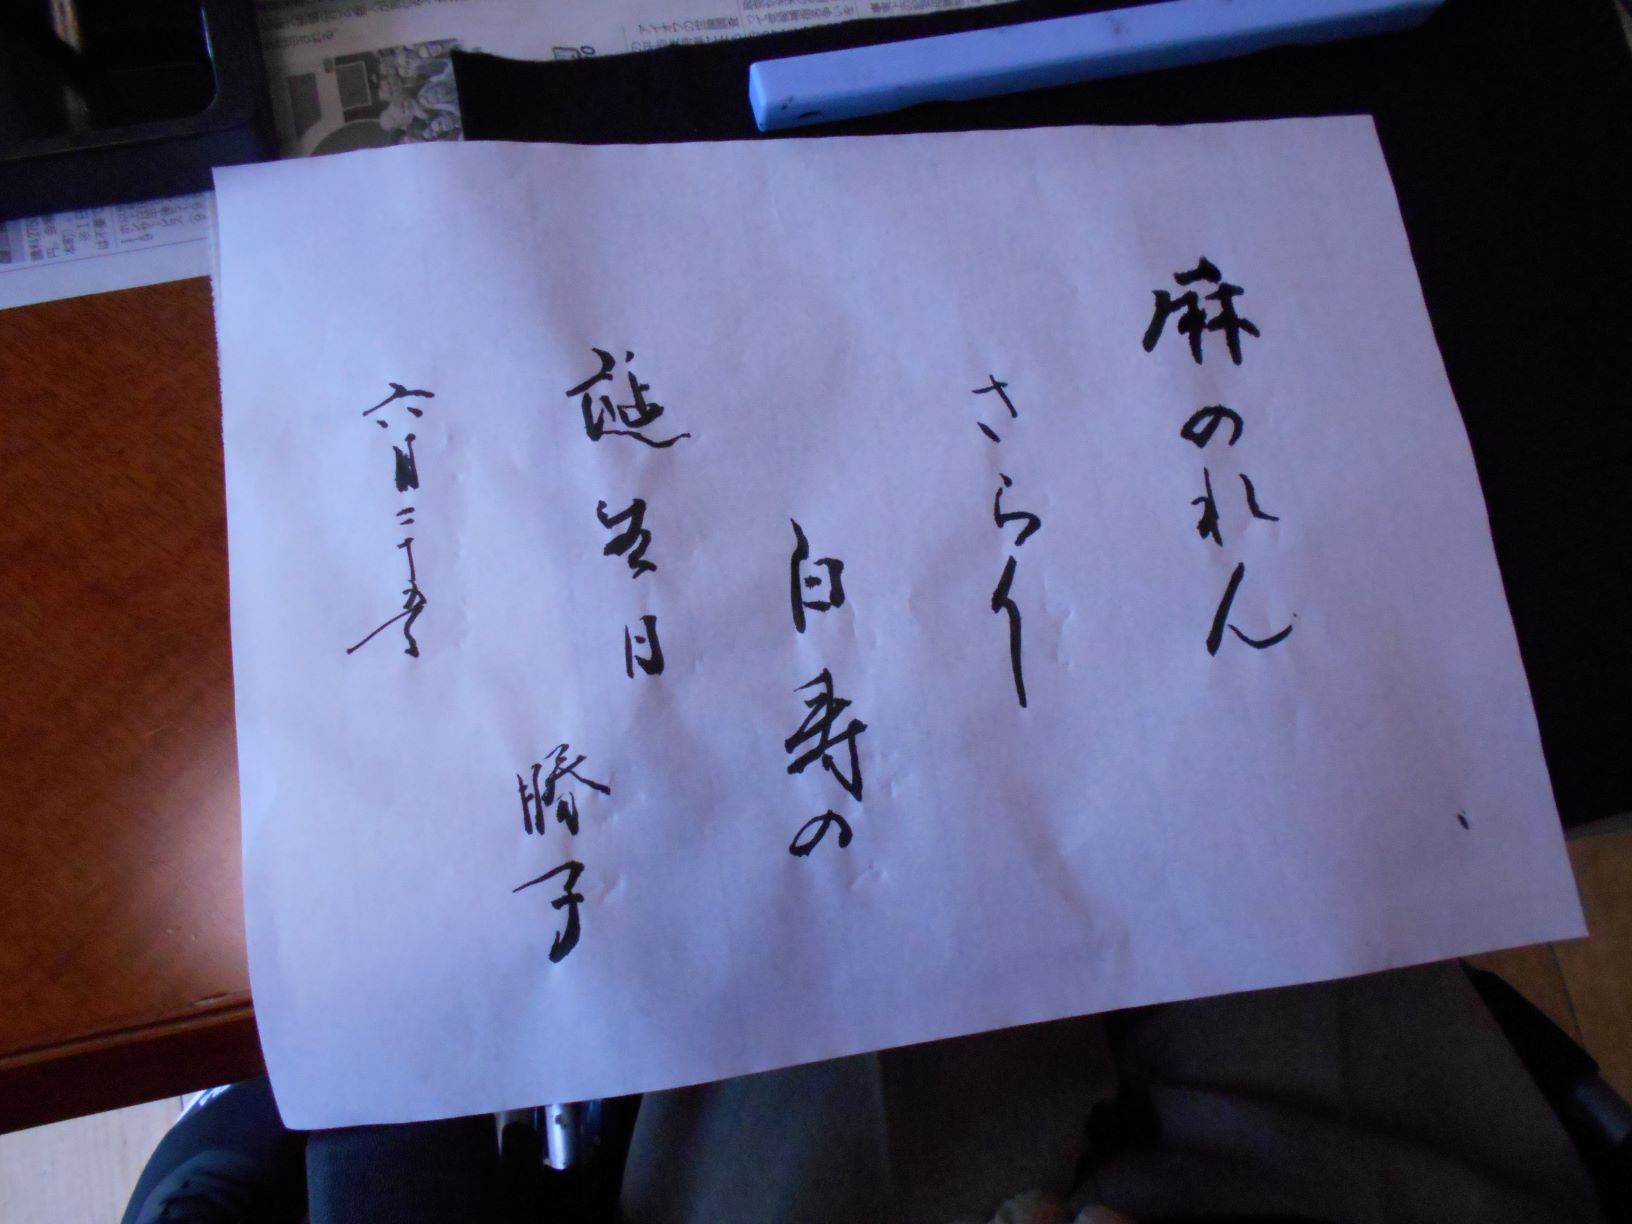 麻のれん
さら〱
白寿の
誕生日
勝子
六月二十五日